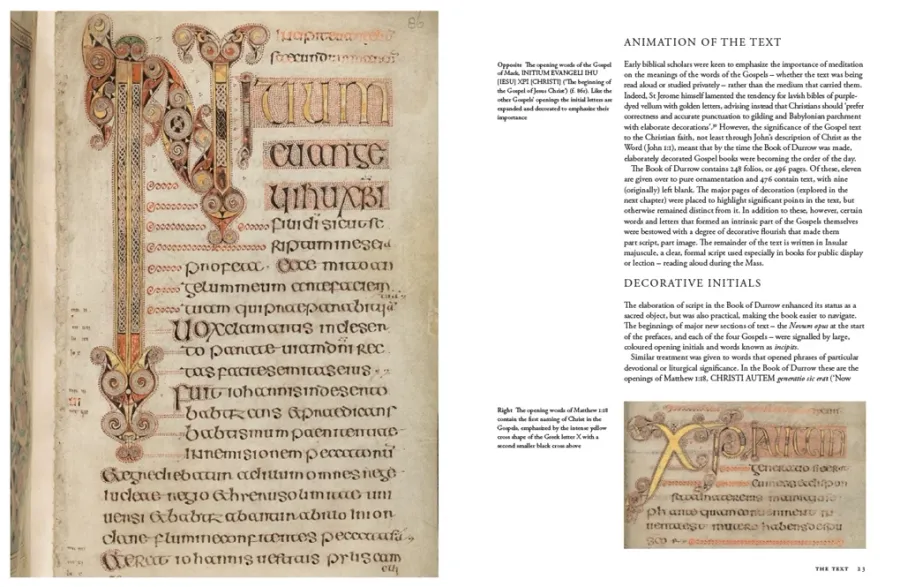 86
INITIUM
euange
lii ihu xpi
fili di sicut sc
riptum in esaia
profeta · Ecce mitto an
gelum meum ante faciem
tuam qui praeparabit uiā
Uox clamantis in deser
to parate uiam dni rec
tas facite semitas eius
Fuit iohannis in deserto
babtizans & praedicans
babtismum paenitentiae
in remisionem peccatorum
iudeae regio & hierusolimitae uni
uersi & babtizabantur ab illo in ior
dane flumine confitentes peccata sua
& erat iohannis uestitus pilis cam
Opposite The opening words of the Gospel
of Mark, INITIUM EVANGELI IHU
[IESU] XPI [CHRISTI] ('The beginning of
the Gospel of Jesus Christ') (f. 86r). Like the
other Gospels' openings the initial letters are
expanded and decorated to emphasize their
importance
ANIMATION OF THE TEXT
Early biblical scholars were keen to emphasize the importance of meditation
on the meanings of the words of the Gospels – whether the text was being
read aloud or studied privately – rather than the medium that carried them.
Indeed, St Jerome himself lamented the tendency for lavish bibles of purple-
dyed vellum with golden letters, advising instead that Christians should 'prefer
correctness and accurate punctuation to gilding and Babylonian parchment
with elaborate decorations'. However, the significance of the Gospel text
to the Christian faith, not least through John's description of Christ as the
Word (John 1:1), meant that by the time the Book of Durrow was made,
elaborately decorated Gospel books were becoming the order of the day.
The Book of Durrow contains 248 folios, or 496 pages. Of these, eleven
are given over to pure ornamentation and 476 contain text, with nine
(originally) left blank. The major pages of decoration (explored in the
next chapter) were placed to highlight significant points in the text, but
otherwise remained distinct from it. In addition to these, however, certain
words and letters that formed an intrinsic part of the Gospels themselves
were bestowed with a degree of decorative flourish that made them
part script, part image. The remainder of the text is written in Insular
majuscule, a clear, formal script used especially in books for public display
or lection – reading aloud during the Mass.
DECORATIVE INITIALS
The elaboration of script in the Book of Durrow enhanced its status as a
sacred object, but was also practical, making the book easier to navigate.
The beginnings of major new sections of text – the Novum opus at the start
of the prefaces, and each of the four Gospels – were signalled by large,
coloured opening initials and words known as incipits.
Similar treatment was given to words that opened phrases of particular
devotional or liturgical significance. In the Book of Durrow these are the
openings of Matthew 1:18, CHRISTI AUTEM generatio sic erat ('Now
Right The opening words of Matthew 1:18
contain the first naming of Christ in the
Gospels, emphasized by the intense yellow
cross shape of the Greek letter X with a
second smaller black cross above
THE TEXT 23